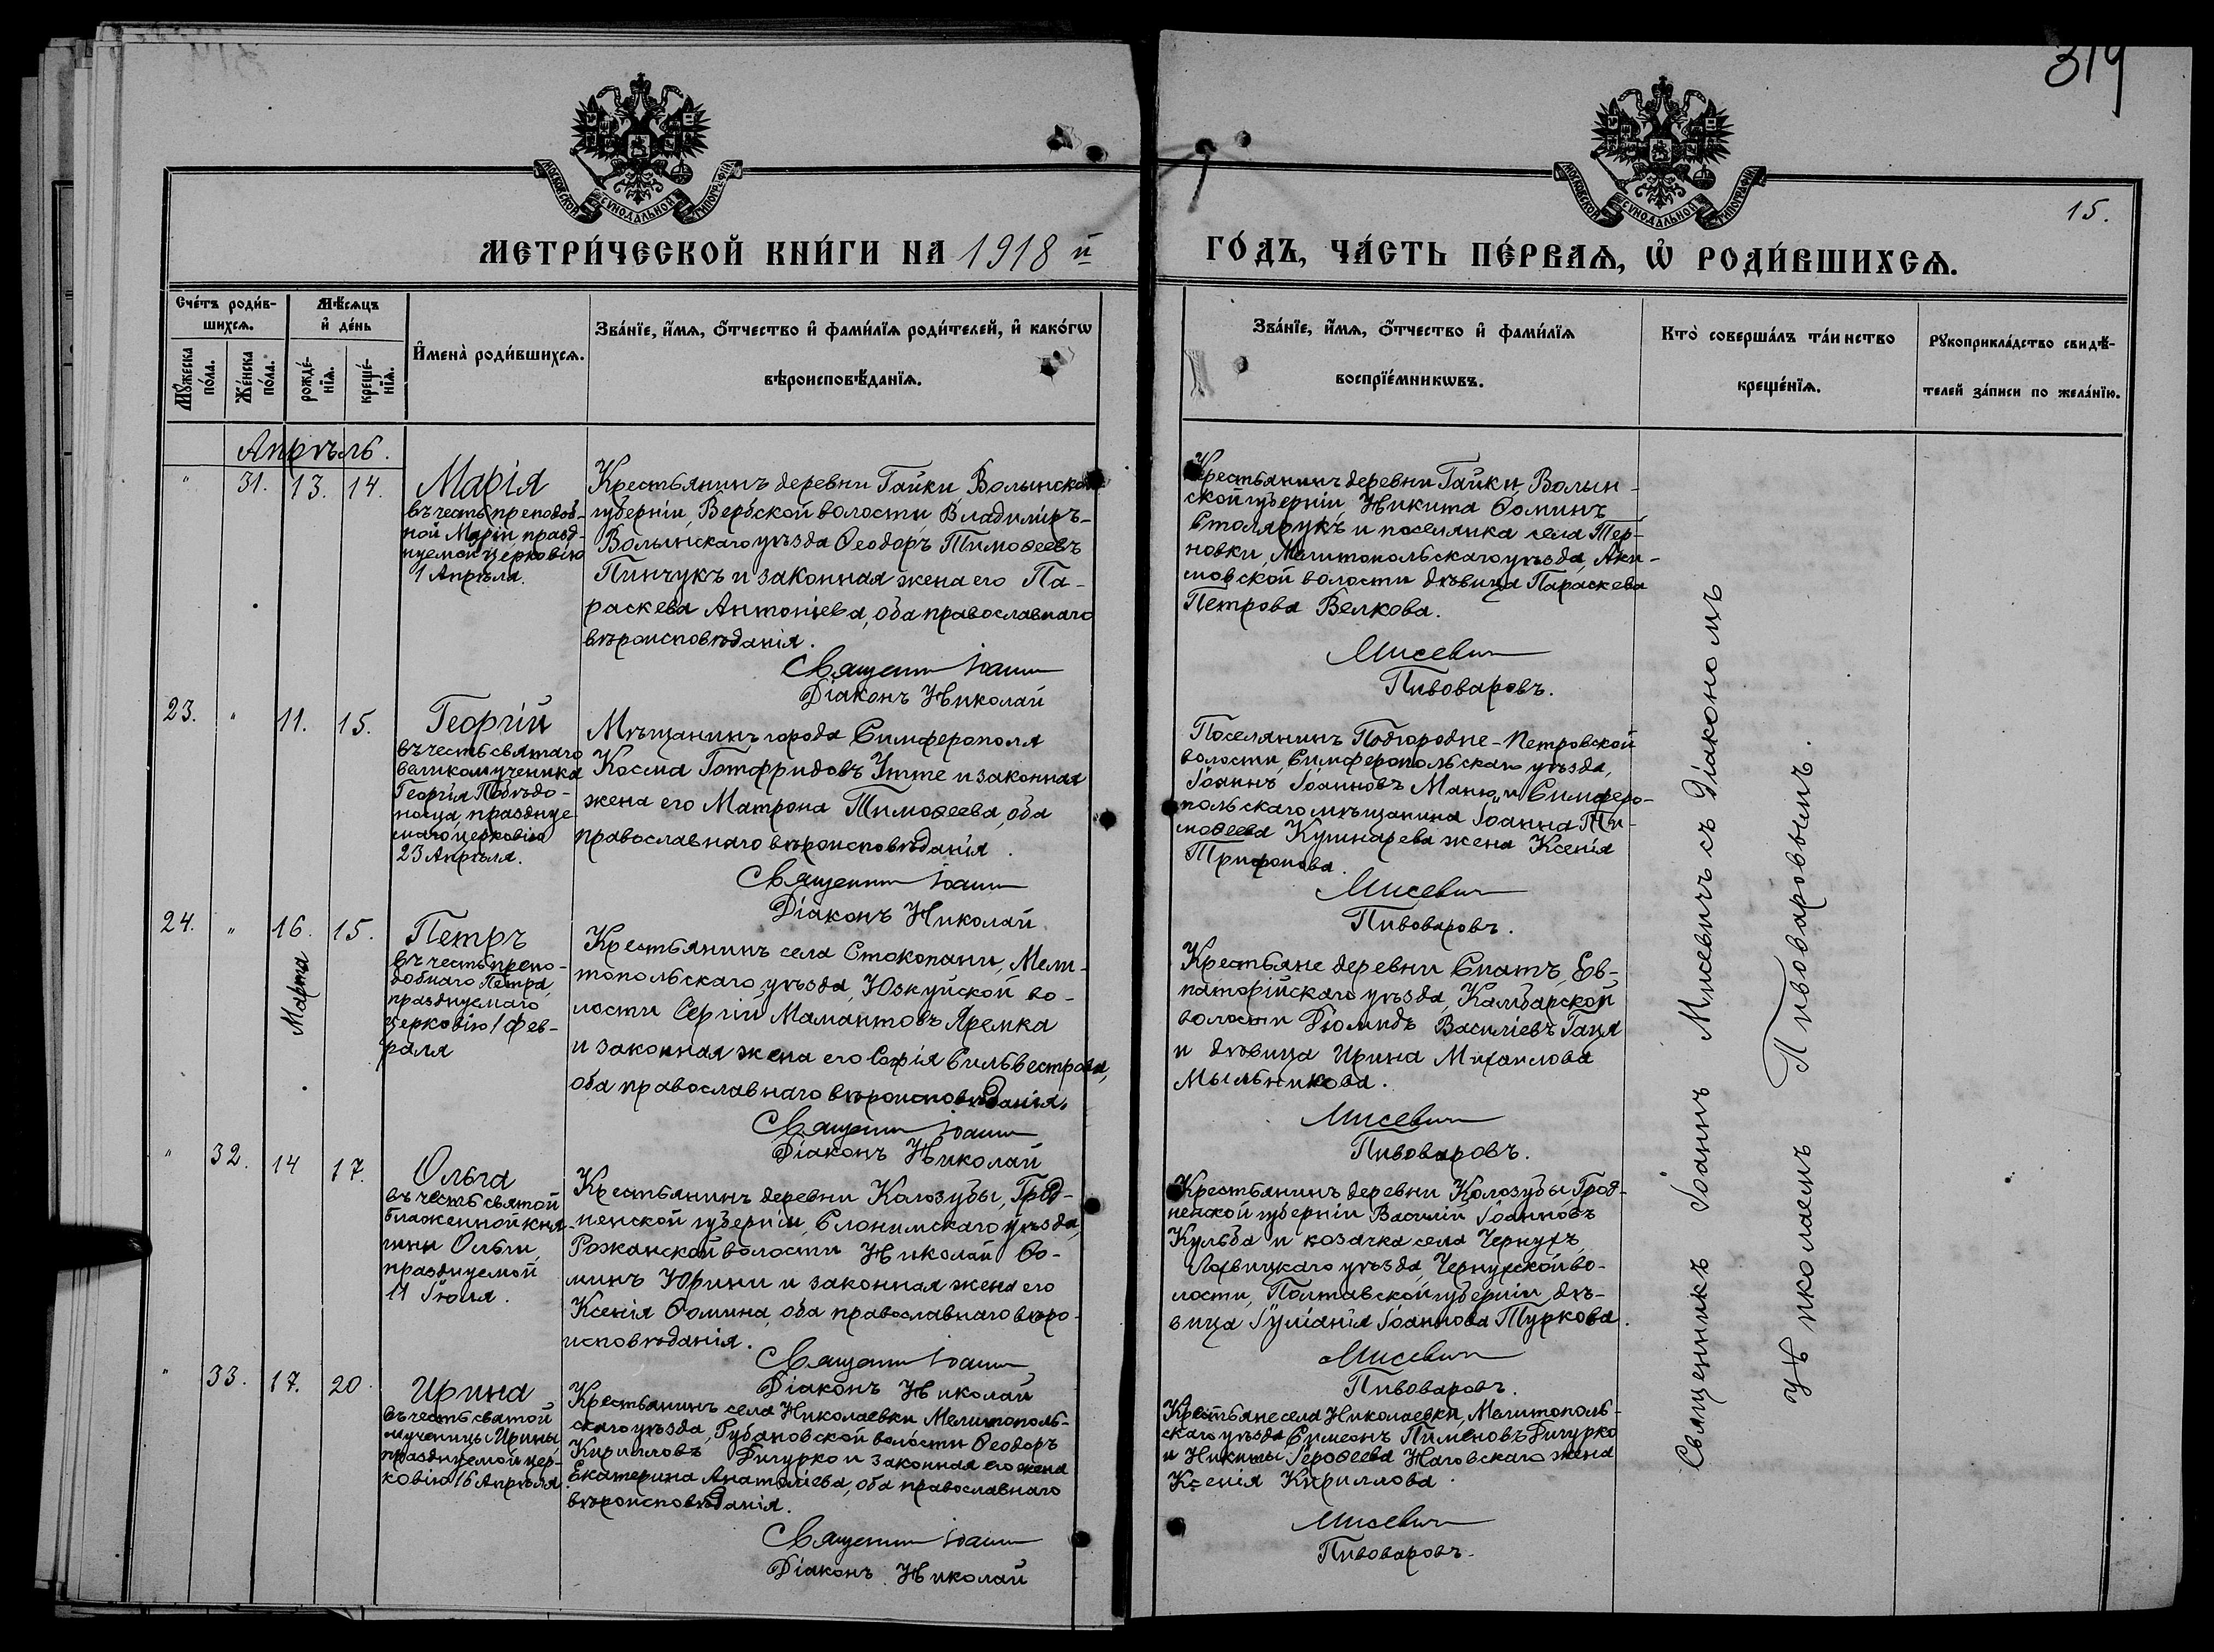 319
МОСКОВСКОЙ СѴНОДАЛЬНОЙ ТИПОГРАФІИ
МОСКОВСКОЙ СѴНОДАЛЬНОЙ ТИПОГРАФІИ
15.
МЕТРИ́ЧЕСКОЙ КНИ́ГИ НА 1918 й
ГО́ДЪ, ЧА́СТЬ ПЕ́РВАѦ, Ѡ҆ РОДИ́ВШИХСѦ.
Сче́тъ роди́в-
шихсѧ.
Мꙋ́жеска по́ла.
Же́нска по́ла.
Мѣ́сѧцъ
и҆ де́нь
рожде́-
нїѧ.
креще́-
нїѧ.
И҆мена̀ роди́вшихсѧ.
Зва́нїе, и҆́мѧ, ѻ҆́тчество и҆ фами́лїѧ роди́телей, и҆ како́гѡ
вѣроисповѣ́данїѧ.
Зва́нїе, и҆́мѧ, ѻ҆́тчество и҆ фами́лїѧ
воспрїе́мникѡвъ.
Кто̀ соверша́лъ та́инство
креще́нїѧ.
Рꙋкоприкла́дство свидѣ́-
телей за́писи по жела́нїю.
Апрѣль.
" 31. 13. 14.
Марія
въ честь преподоб-
ной Маріи, празд-
нуемой церковію
1 Апрѣля.
Крестьянинъ деревни Гайки, Волынской
губерніи, Вербской волости, Владиміръ-
Волынскаго уѣзда Ѳеодоръ Тимоѳеевъ
Пинчукъ и законная жена его Па-
раскева Антоніева, оба православнаго
вѣроисповѣданія.
Священник Іоанн
Діаконъ Николай
Крестьянинъ деревни Гайки, Волын-
ской губерніи, Никита Ѳоминъ
Столярукъ и поселянка села Тер-
новки, Мелитопольскаго уѣзда, Аки-
мовской волости дѣвица Параскева
Петрова Велкова.
Мисевич
Пивоваровъ.
23. " 11. 15.
Георгій
въ честь святаго
великомученика
Георгія Побѣдо-
носца, праздн уе-
маго церковію
23 Апрѣля.
Мѣщанинъ города Симферополя
Косма Готфридовъ Утте и законная
жена его Матрона Тимоѳеева, оба
православнаго вѣроисповѣданія.
Священник Іоанн
Діаконъ Николай
Поселянинъ Подгородне-Петровской
волости, Симферопольскаго уѣзда,
Іоаннъ Іоанновъ Маню, и Симферо-
польскаго мѣщанина Іоанна Ти-
моѳеева Кушнарева жена Ксенія
Трифонова.
Мисевич
Пивоваровъ.
24. " 16. 15.
Марта
Петръ
въ честь препо-
добнаго Петра,
празднуемаго
церковію 1 Фев-
раля
Крестьянинъ села Стокопани, Мели-
топольскаго уѣзда, Юзкуйской во-
лости Сергій Мамантовъ Яремка
и законная жена его Софія Сильвестрова,
оба православнаго вѣроисповѣданія.
Священник Іоанн
Діаконъ Николай
Крестьяне деревни Спатъ, Ев-
паторійскаго уѣзда, Камбарской
волости Діомидъ Василіевъ Гаця
и дѣвица Ирина Михаилова
Мыльникова.
Мисевич
Пивоваровъ.
" 32. 14 17.
Ольга
въ честь святой
блаженной кня-
гини Ольги,
празднуемой
11 Іюля.
Крестьянинъ деревни Колозубы, Грод-
ненской губерніи, Слонимскаго уѣзда,
Рожанской волости Николай Ѳо-
минъ Юрини и законная жена его
Ксенія Ѳомина, оба православнаго вѣро-
исповѣданія.
Священник Іоанн
Діаконъ Николай
Крестьянинъ деревни Колозубы Грод-
ненской губерніи Василій Іоанновъ
Кульба и козачка села Чернухъ,
Лохвицкаго уѣзда, Чернухской во-
лости, Полтавской губерніи, дѣ-
вица Іуліанія Іоаннова Туркова.
Мисевич
Пивоваровъ.
" 33. 17. 20.
Ирина
въ честь святой
мученицы Ирины,
празднуемой цер-
ковію 16 Апрѣля
Крестьянинъ села Николаевки Мелитополь-
скаго уѣзда, Рубановской волости Ѳеодоръ
Кирилловъ Дигурко и законная его жена
Екатерина Анатоліева, оба православнаго
вѣроисповѣданія.
Священник Іоанн
Діаконъ Николай
Крестьяне села Николаевки, Мелитополь-
скаго уѣзда Симеонъ Пименовъ Дигурко
и Никиты Героѳеева Наговскаго жена
Ксенія Кириллова.
Мисевич
Пивоваровъ.
Священникъ Іоаннъ Мисевичъ съ Діакономъ
Николаемъ Пивоваровымъ.